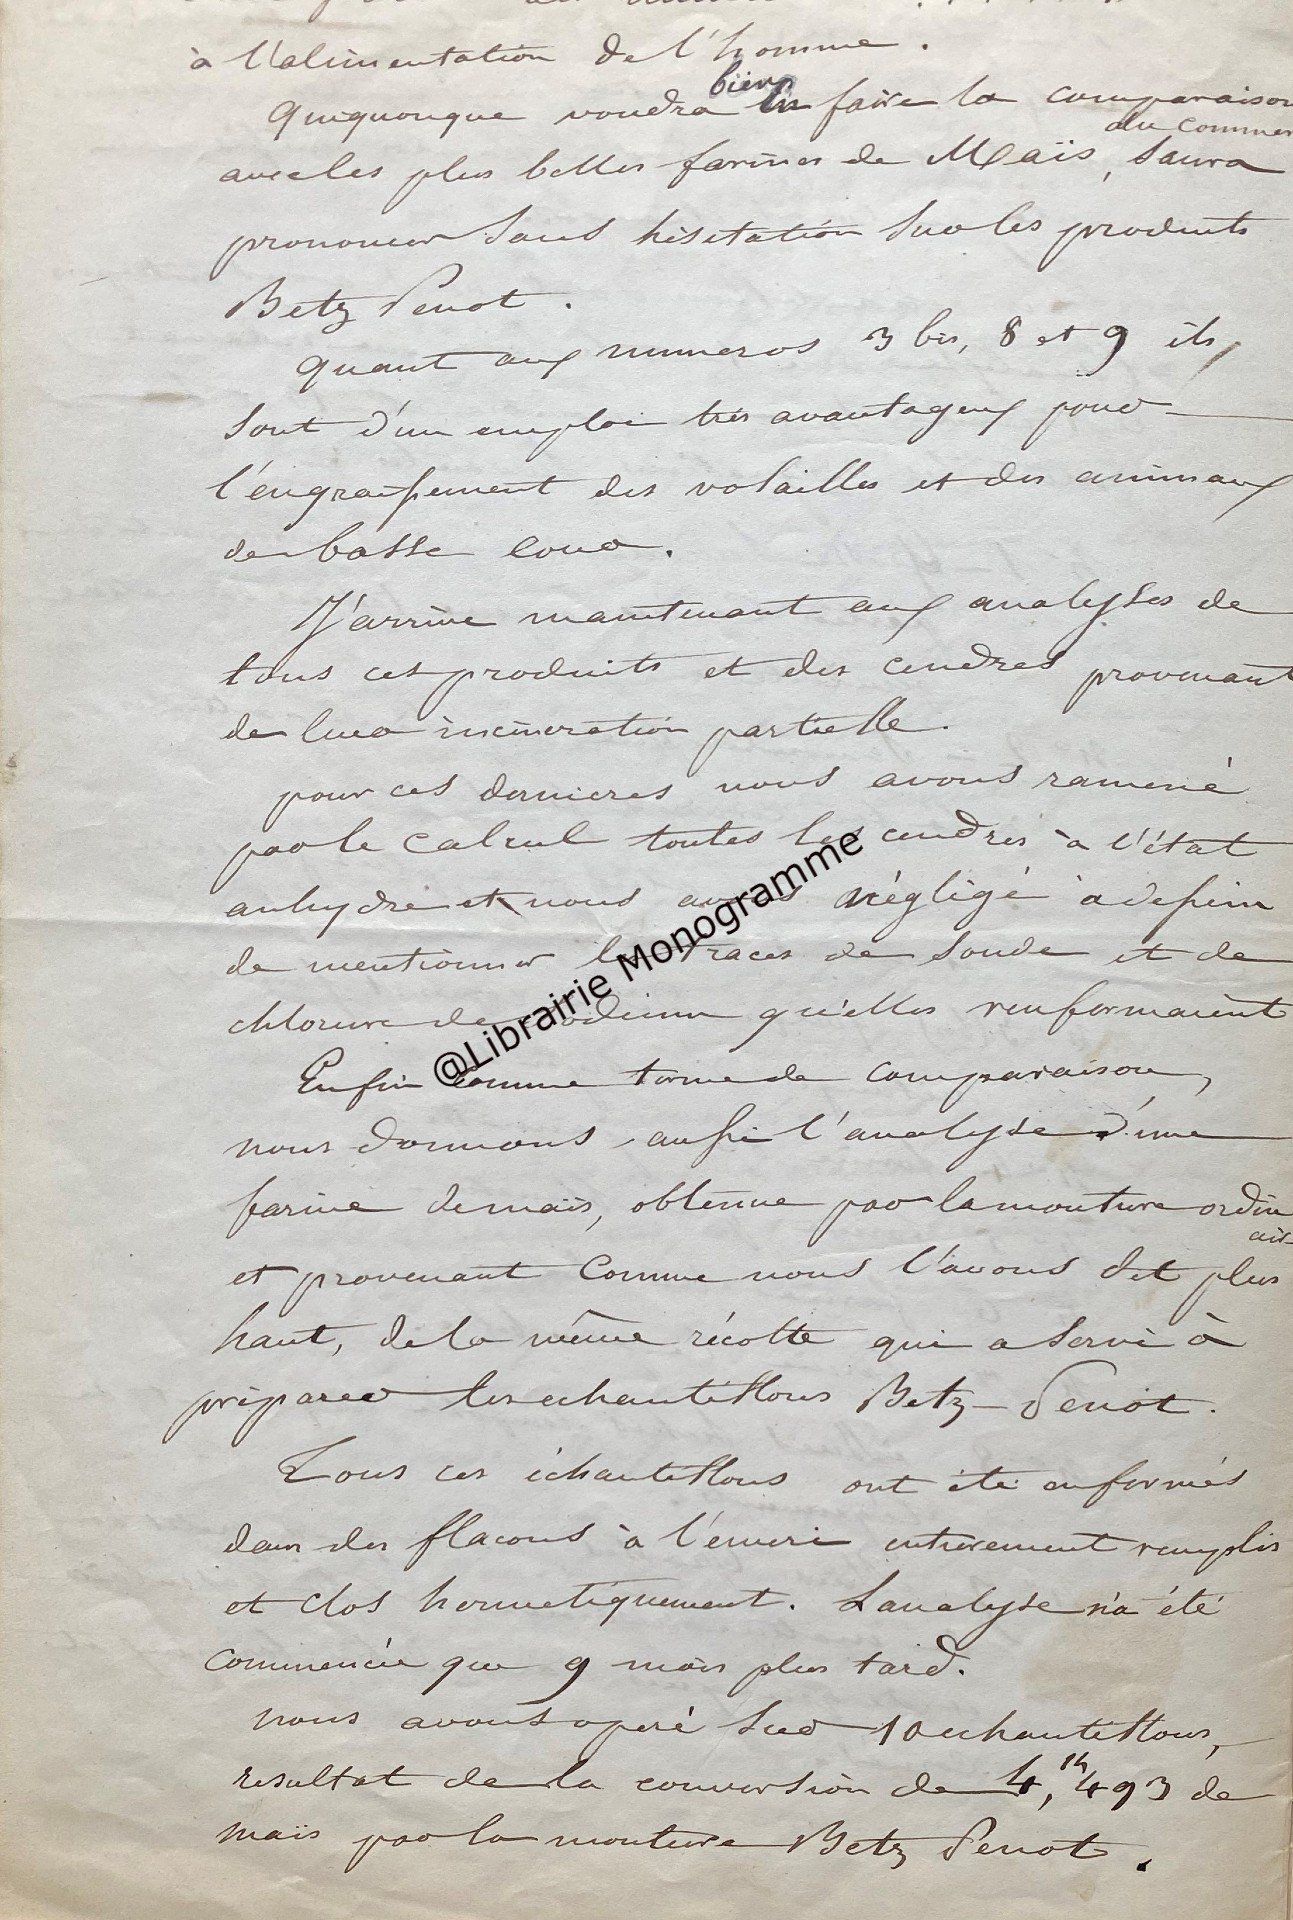 à l'alimentation de l'homme.
Quiquonque voudra bien en faire la comparaison
du commer
avec les plus belles farines de Maïs, saura
prononcer sans hésitation sur les produits
Betz Penot.
Quant aux numeros 3 bis, 8 et 9 ils
sont d'un emploi très avantageux pour
l'engraissement des volailles et des animaux
de basse cour.
J'arrive maintenant aux analyses de
tous ces produits et des cendres provenant
de leur incineration partielle.
pour ces dernieres nous avons ramené
par le calcul toutes les cendres à l'état
anhydre et nous avons négligé à dessein
de mentionner les traces de soude et de
chlorure de sodium qu'elles renfermaient
Enfin comme terme de comparaison,
nous donnons aussi l'analyse d'une
farine de maïs, obtenue par la mouture ordin
air
et provenant comme nous l'avons dit plus
haut, de la même récolte qui a servi à
préparer les echantillons Betz-Penot.
Tous ces échantillons ont été enfermés
dans des flacons à l'émeri entierement remplis
et clos hermetiquement. L'analyse n'a été
commencée que 9 mois plus tard.
nous avons opéré sur 10 echantillons,
resultat de la conversion de 4,k493 de
maïs par la mouture Betz Penot.
@Librairie Monogramme